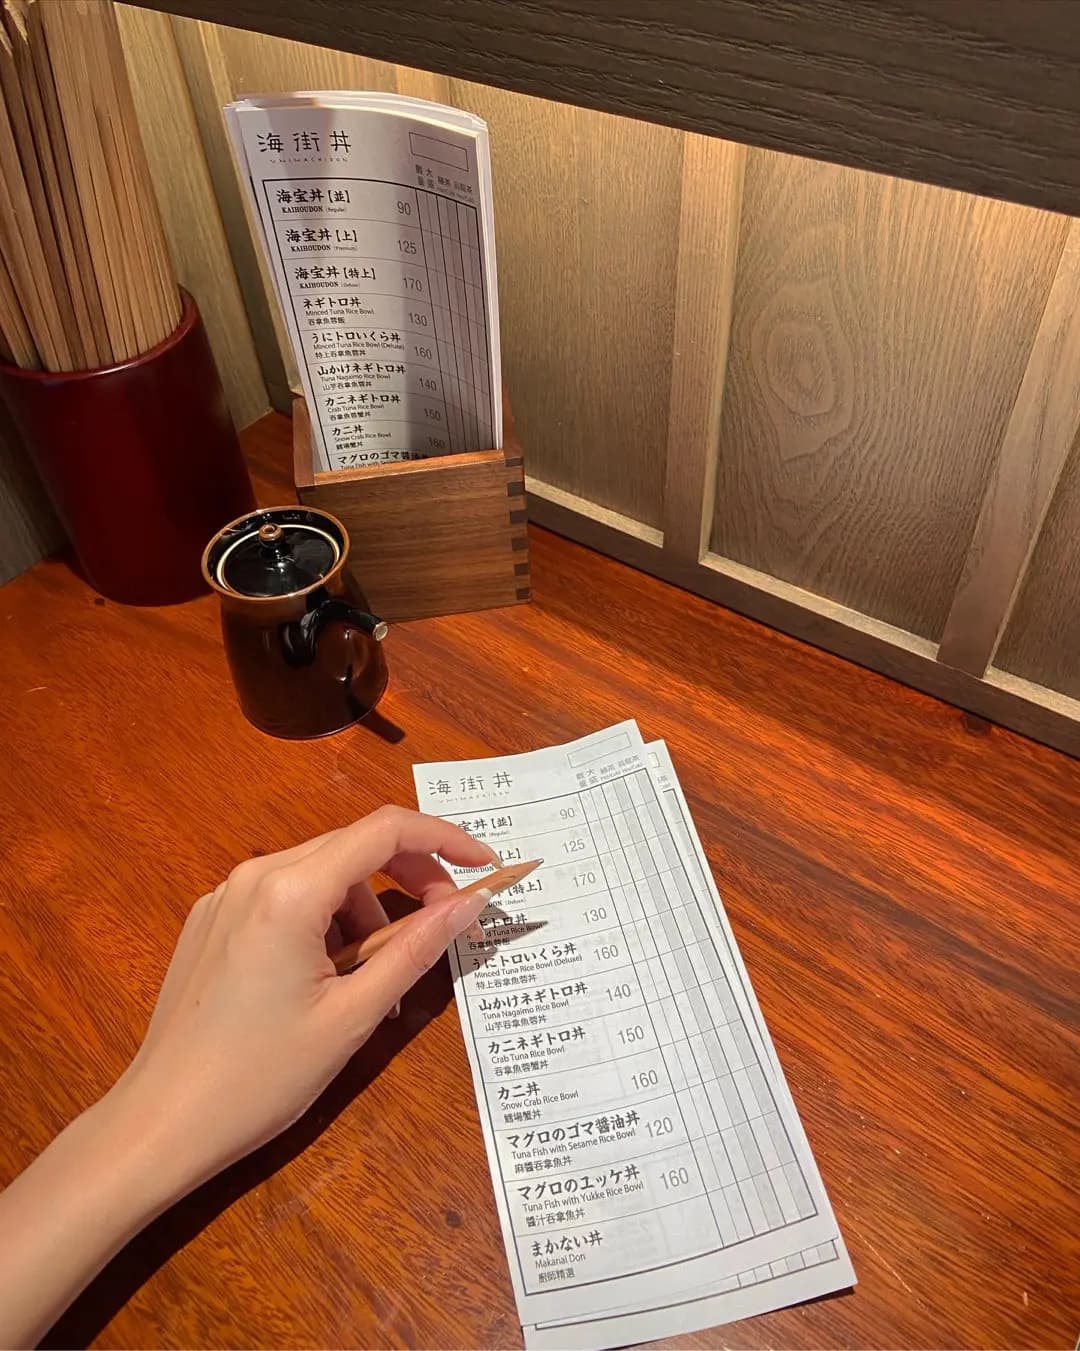 海街丼
UMIMACHIDON
数量 大盛 緑茶 烏龍茶
海宝丼【並】
KAIHOUDON (Regular)
90
海宝丼【上】
KAIHOUDON (Premium)
125
海宝丼【特上】
KAIHOUDON (Deluxe)
170
ネギトロ丼
Minced Tuna Rice Bowl
吞拿魚蓉飯
130
うにトロいくら丼
Minced Tuna Rice Bowl (Deluxe)
特上吞拿魚蓉丼
160
山かけネギトロ丼
Tuna Nagaimo Rice Bowl
山芋吞拿魚蓉丼
140
カニネギトロ丼
Crab Tuna Rice Bowl
吞拿魚蓉蟹丼
150
カニ丼
Snow Crab Rice Bowl
鱈場蟹丼
160
マグロのゴマ醤油
Tuna Fish with Sesame
海街丼
UMIMACHIDON
数量 大盛 緑茶 烏龍茶
宝丼【並】
DON (Regular)
90
【上】
KAIHOUDON
125
【特上】
DON (Deluxe)
170
ギトロ丼
d Tuna Rice Bowl
吞拿魚蓉飯
130
うにトロいくら丼
Minced Tuna Rice Bowl (Deluxe)
特上吞拿魚蓉丼
160
山かけネギトロ丼
Tuna Nagaimo Rice Bowl
山芋吞拿魚蓉丼
140
カニネギトロ丼
Crab Tuna Rice Bowl
吞拿魚蓉蟹丼
150
カニ丼
Snow Crab Rice Bowl
鱈場蟹丼
160
マグロのゴマ醤油丼
Tuna Fish with Sesame Rice Bowl
麻醬吞拿魚丼
120
マグロのユッケ丼
Tuna Fish with Yukke Rice Bowl
醬汁吞拿魚丼
160
まかない丼
Makanai Don
廚師精選